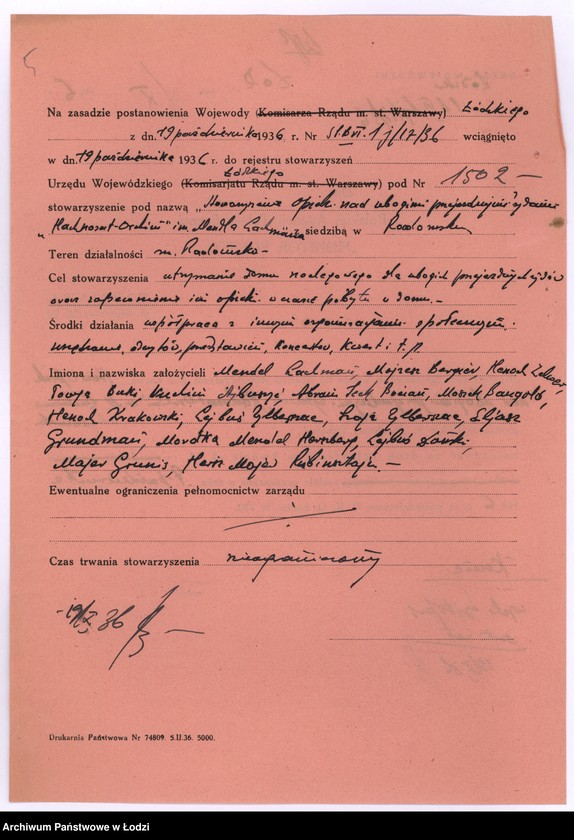 Na zasadzie postanowienia Wojewody (Komisarza Rządu m. st. Warszawy) Łódzkiego
z dn. 19 października 1936 r. Nr 1j/17/36 wciągnięto
w dn. 19 października 1936 r. do rejestru stowarzyszeń
Łódzkiego
Urzędu Wojewódzkiego (Komisarjatu Rządu m. st. Warszawy) pod Nr 1502 —
stowarzyszenie pod nazwą „ opieki nad ubogimi przejezdnymi żydami
„Hachnosat-Orchim" im. Mendla Lachmana z siedzibą w Radomsku
Teren działalności m. Radomsko -
Cel stowarzyszenia utrzymanie domu noclegowego dla ubogich przejezdnych żydów
oraz zapewnienie im opieki w czasie pobytu w domu. -
Środki działania współpraca z innymi organizacjami społecznymi,
urządzanie odczytów, przedstawień, koncertów, kwest i t. p.
Imiona i nazwiska założycieli Mendel Lachman, Majzesz Henoch
Abram Icek Moszek
Henoch Krakowski, Lejbuś Zylberszac, Zylberszac, Eljasz
Grundman, Mordka Mendel Herszberg, Lejbuś
Majer Hersz Majer Rubinsztajn. —
Ewentualne ograniczenia pełnomocnictw zarządu
Czas trwania stowarzyszenia nieograniczony
19/X 36
Drukarnia Państwowa Nr 74809. 5.II.36. 5000.
Archiwum Państwowe w Łodzi